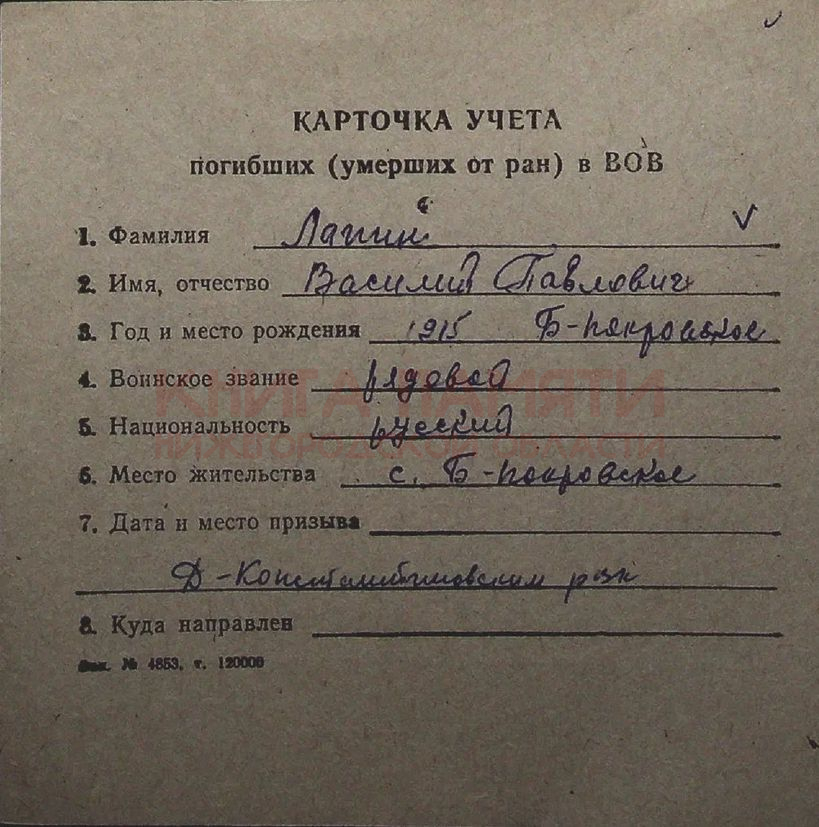 КАРТОЧКА УЧЕТА
погибших (умерших от ран) в ВОВ
1. Фамилия Лапин
2. Имя, отчество Василий Павлович
3. Год и место рождения 1915 Б-покровское
4. Воинское звание рядовой
КНИГА ПАМЯТИ
5. Национальность русский
НИЖЕГОРОДСКОЙ ОБЛАСТИ
6. Место жительства с. Б-покровское
7. Дата и место призыва
Д-Константиновским рвк
8. Куда направлен
Зак. № 4853, т. 120000